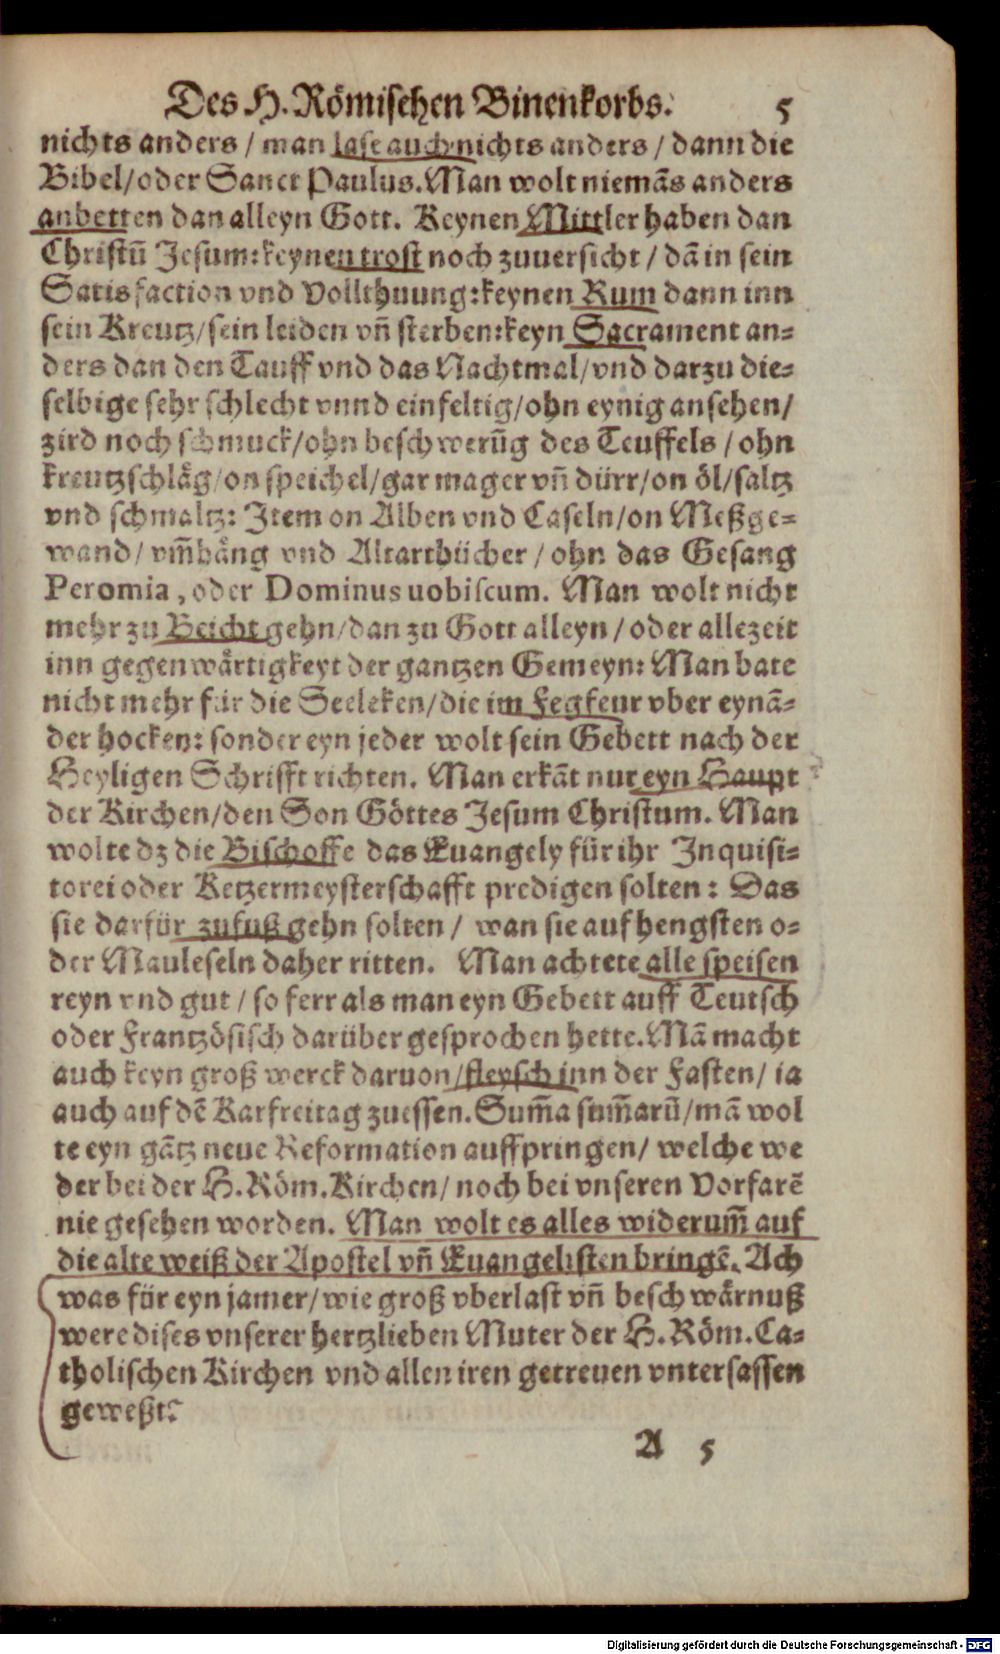 Des H. Römischen Binenkorbs. 5
nichts anders / man lase auch nichts anders / dann die
Bibel/oder Sanct Paulus. Man wolt niemãs anders
anbetten dan alleyn Gott. Keynen Mittler haben dan
Christũ Jesum: keynen trost noch zuuersicht / dã in sein
Satisfaction vnd Vollthuung: keynen Rum dann inn
sein Kreutz/sein leiden vñ sterben: keyn Sacrament an⸗
ders dan den Tauff vnd das Nachtmal/vnd darzu die⸗
selbige sehr schlecht vnnd einfeltig/ohn eynig ansehen/
zird noch schmuck/ohn beschwerũg des Teuffels / ohn
kreutzschläg/on speichel/gar mager vñ dürr/on öl/saltz
vnd schmaltz: Item on Alben vnd Caseln/on Meßge⸗
wand/ vm̃häng vnd Altarthücher / ohn das Gesang
Peromia, oder Dominus uobiscum. Man wolt nicht
mehr zu Beicht gehn/dan zu Gott alleyn / oder allezeit
inn gegenwärtigkeyt der gantzen Gemeyn: Man bate
nicht mehr für die Seeleken/die im Fegfeur vber eynã⸗
der hocken: sonder eyn jeder wolt sein Gebett nach der
Heyligen Schrifft richten. Man erkãt nur eyn Haupt
der Kirchen/den Son Göttes Jesum Christum. Man
wolte dz die Bischoffe das Euangely für ihr Inquisi⸗
torei oder Ketzermeysterschafft predigen solten: Das
sie darfür zufuß gehn solten / wan sie auf hengsten o⸗
der Mauleseln daher ritten. Man achtete alle speisen
reyn vnd gut / so ferr als man eyn Gebett auff Teutsch
oder Frantzösisch darüber gesprochen hette. Mã macht
auch keyn groß werck daruon/fleysch inn der Fasten/ ia
auch auf dẽ Karfreitag zuessen. Sum̃a sum̃arũ/mã wol
te eyn gãtz neue Reformation auffpringen/ welche we
der bei der H. Röm. Kirchen/ noch bei vnseren Vorfarẽ
nie gesehen worden. Man wolt es alles widerum̃ auf
die alte weiß der Apostel vñ Euangelisten bringẽ. Ach
was für eyn jamer/wie groß vberlast vñ beschwärnuß
were dises vnserer hertzlieben Muter der H. Röm. Ca⸗
tholischen Kirchen vnd allen iren getreuen vntersassen
geweßt?
A 5
Digitalisierung gefördert durch die Deutsche Forschungsgemeinschaft - DFG